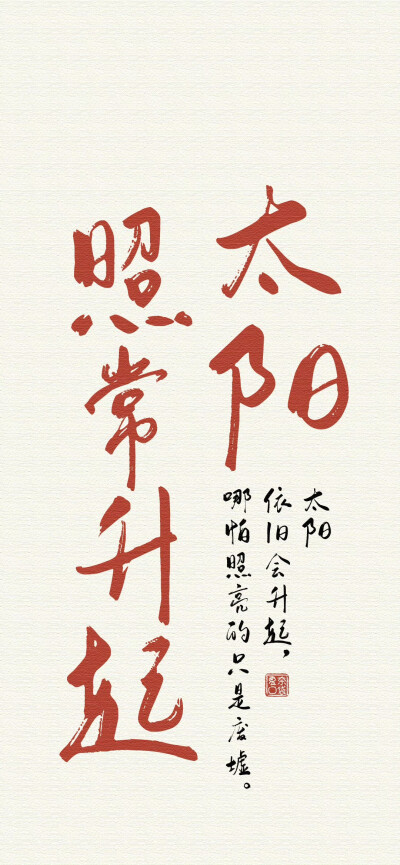 太阳
照常升起
太阳
依旧会升起，
哪怕照亮的只是废墟。